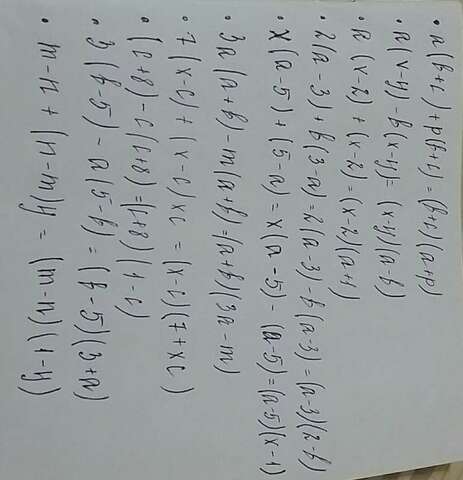 • a(b+c)+p(b+c)=(b+c)(a+p)
• a(x-y)-b(x-y)=(x-y)(a-b)
• a(x-2)+(x-2)=(x-2)(a+1)
• 2(a-3)+b(3-a)=2(a-3)-b(a-3)=(a-3)(2-b)
• x(a-5)+(5-a)=x(a-5)-(a-5)=(a-5)(x-1)
• 3a(a+b)-m(a+b)=(a+b)(3a-m)
• 7(x-c)+(x-c)xc=(x-c)(7+xc)
• (c+8)-c(c+8)=(c+8)(1-c)
• 3(b-5)-a(5-b)=(b-5)(3+a)
• m-n+(n-m)y=(m-n)(1-y)